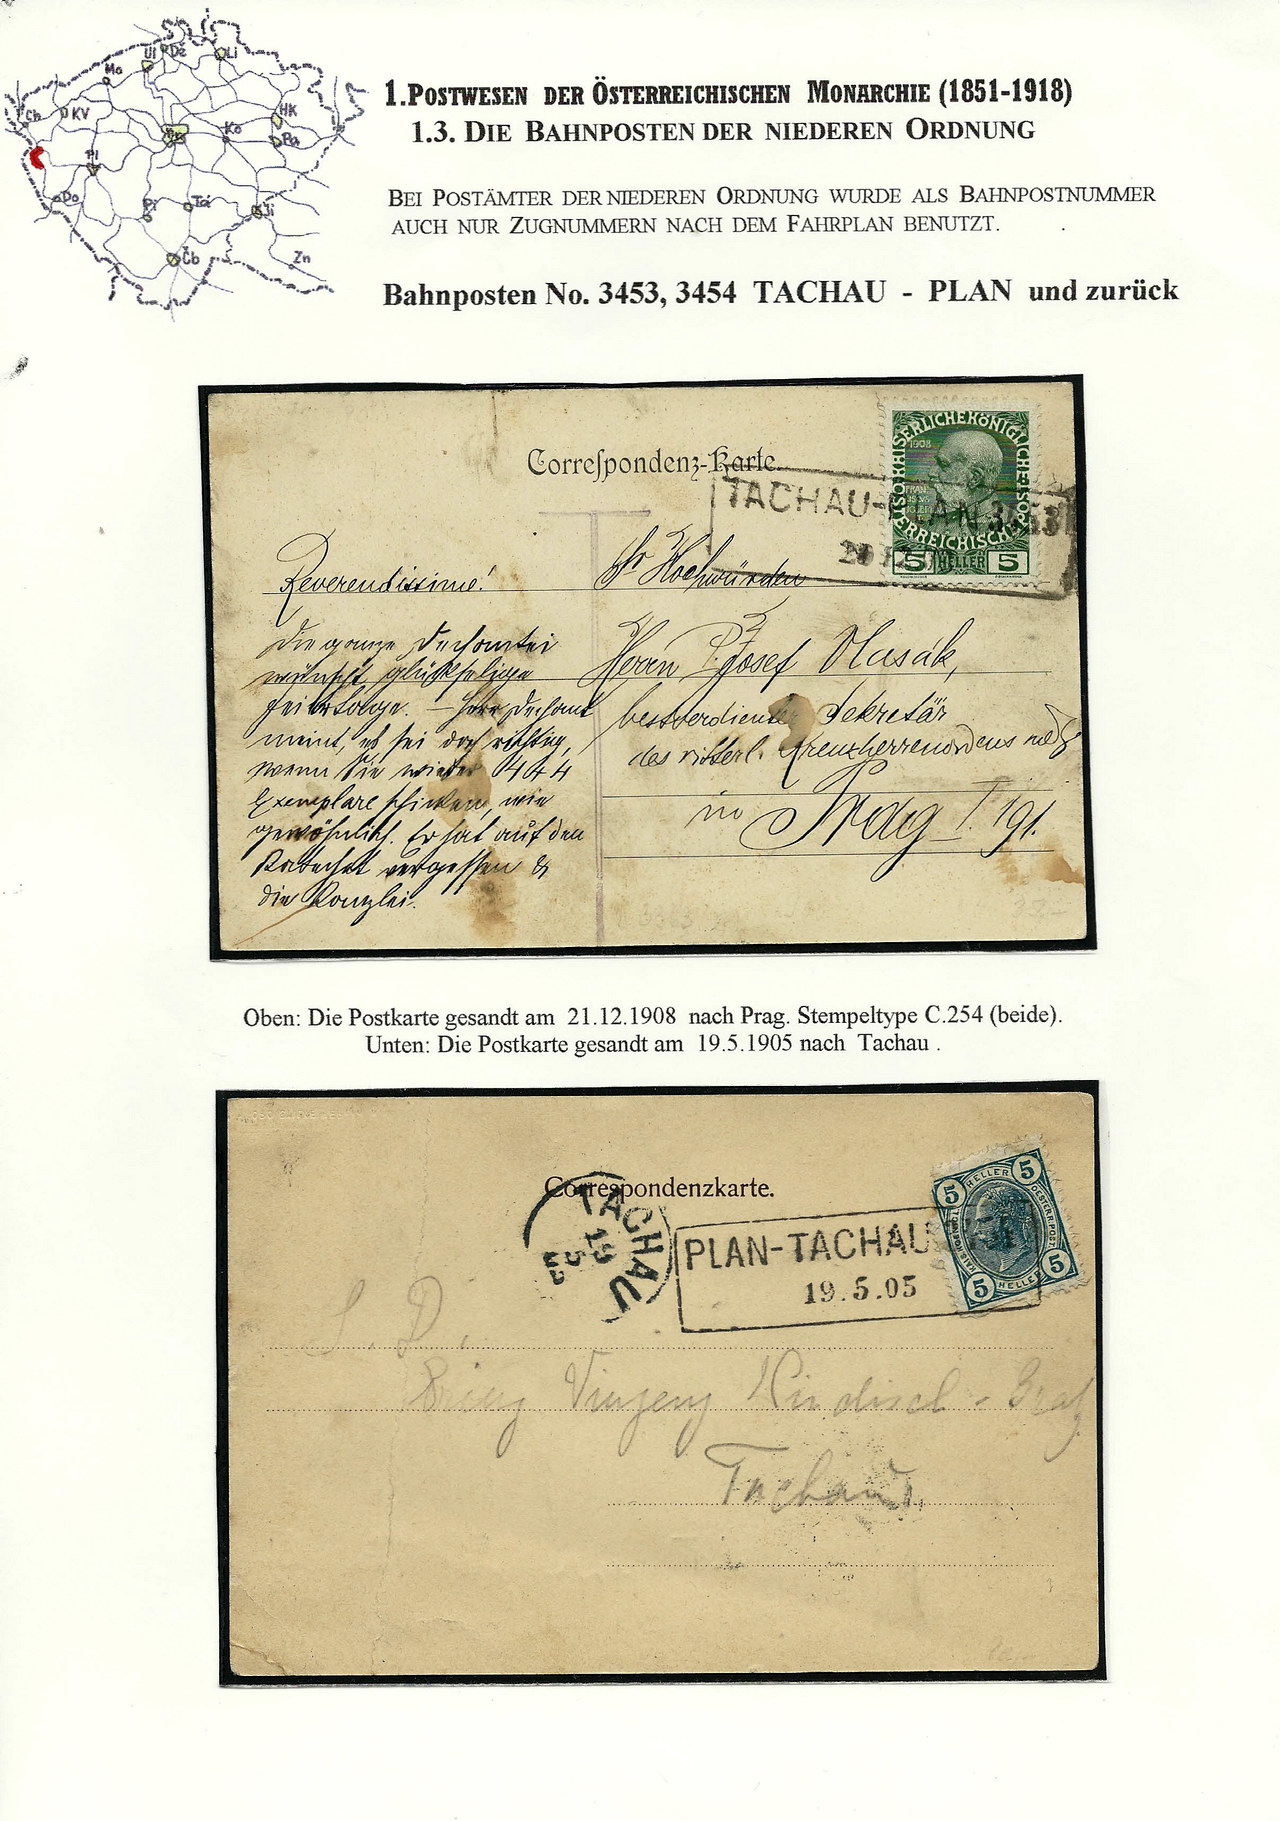 Ul
Dě
Li
Mo
Ch
KV
HK
Ko
Pa
Pl
Do
Pi
Tá
Ji
Čb
Zn
1. POSTWESEN DER ÖSTERREICHISCHEN MONARCHIE (1851-1918)
1.3. DIE BAHNPOSTEN DER NIEDEREN ORDNUNG
BEI POSTÄMTER DER NIEDEREN ORDNUNG WURDE ALS BAHNPOSTNUMMER
AUCH NUR ZUGNUMMERN NACH DEM FAHRPLAN BENUTZT.
Bahnposten No. 3453, 3454 TACHAU - PLAN und zurück
Correspondenz-Karte.
KAISERLICHE KÖNIGLICHE
ÖSTERREICHISCHE POST
1908
5 HELLER 5
TACHAU-PLAN 3453
Reverendissime!
Die ganze Dechantei
wünscht glückselige
Feiertage. – Herr Dechant
meint, es sei doch richtig,
wenn Sie wieder 444
Exemplare schicken, wie
gewöhnlich. Er hat auf den
vergessen &
die Kanzlei.
Sr Hochwürden
Herrn P. Josef Vlasák,
bestverdienter Sekretär
des ritterl. Kreuzherrenordens
in Prag I. 191.
Oben: Die Postkarte gesandt am 21.12.1908 nach Prag. Stempeltype C.254 (beide).
Unten: Die Postkarte gesandt am 19.5.1905 nach Tachau .
Correspondenzkarte.
TACHAU
19
5
PLAN-TACHAU
19.5.05
5 HELLER 5
KAIS. KOENIGL. OESTERR. POST
5 HELLER 5
S. D.
Prinz Vinzenz Windisch-Graf
Tachau